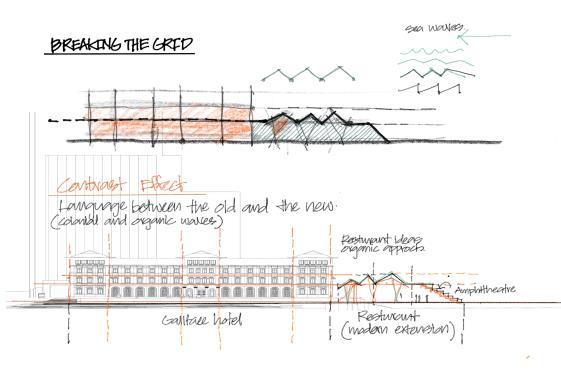 BREAKING THE GRID
sea waves
Contrast Effect
Language between the old and the new.
(colonial and organic waves)
Restaurant ideas
organic approch
Amphitheatre
Gallface hotel
Restaurant
(modern extension)